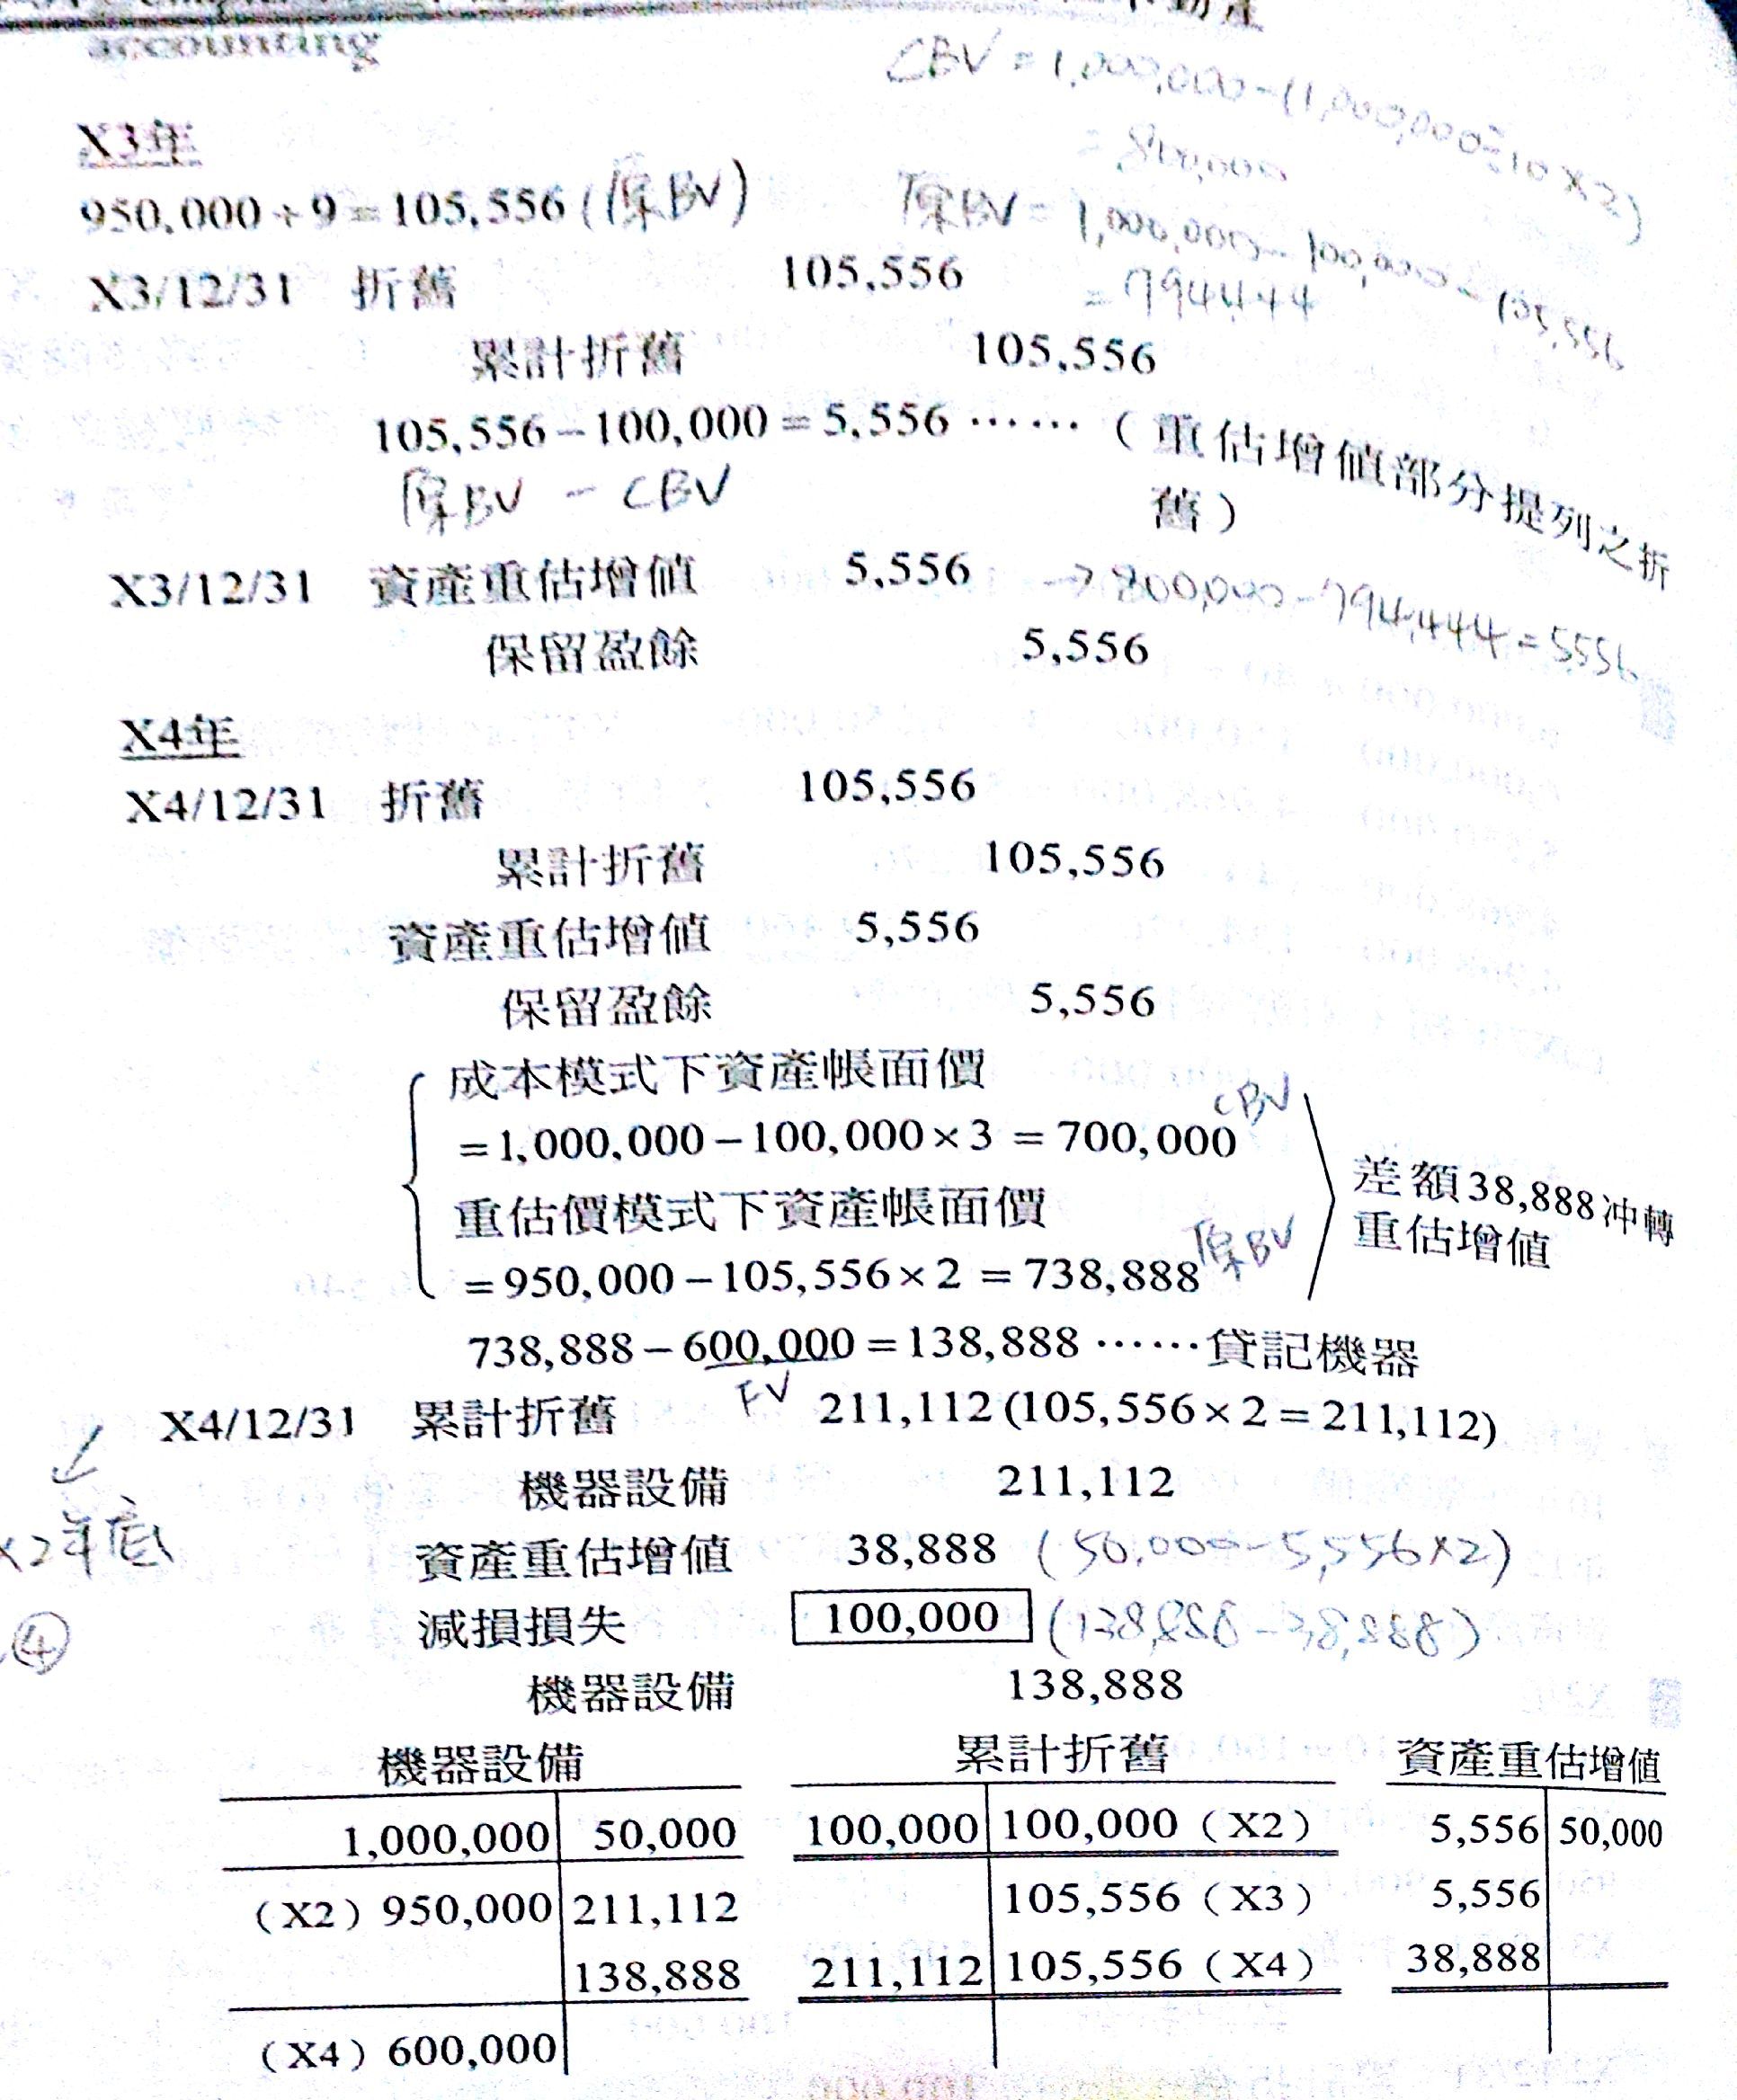 accounting
CBV = 1,000,000-(1,000,000÷10×2)
= 800,000
X3年
950,000÷9=105,556(原BV)
原BV = 1,000,000-100,000-105,556
= 794,444
X3/12/31 折舊 105,556
累計折舊 105,556
105,556-100,000=5,556……(重估增值部分提列之折
舊)
原BV - CBV
X3/12/31 資產重估增值 5,556 → 800,000-794,444=5556
保留盈餘 5,556
X4年
X4/12/31 折舊 105,556
累計折舊 105,556
資產重估增值 5,556
保留盈餘 5,556
成本模式下資產帳面價
=1,000,000-100,000×3=700,000 CBV
重估價模式下資產帳面價
=950,000-105,556×2=738,888 原BV
差額38,888沖轉
重估增值
738,888-600,000=138,888……貸記機器
FV
X4/12/31 累計折舊 211,112(105,556×2=211,112)
機器設備 211,112
X2年底
資產重估增值 38,888 (50,000-5,556×2)
④
減損損失 100,000 (138,888-38,888)
機器設備 138,888
機器設備 累計折舊 資產重估增值
1,000,000 50,000 100,000 100,000(X2) 5,556 50,000
(X2)950,000 211,112 105,556(X3) 5,556
138,888 211,112 105,556(X4) 38,888
(X4)600,000